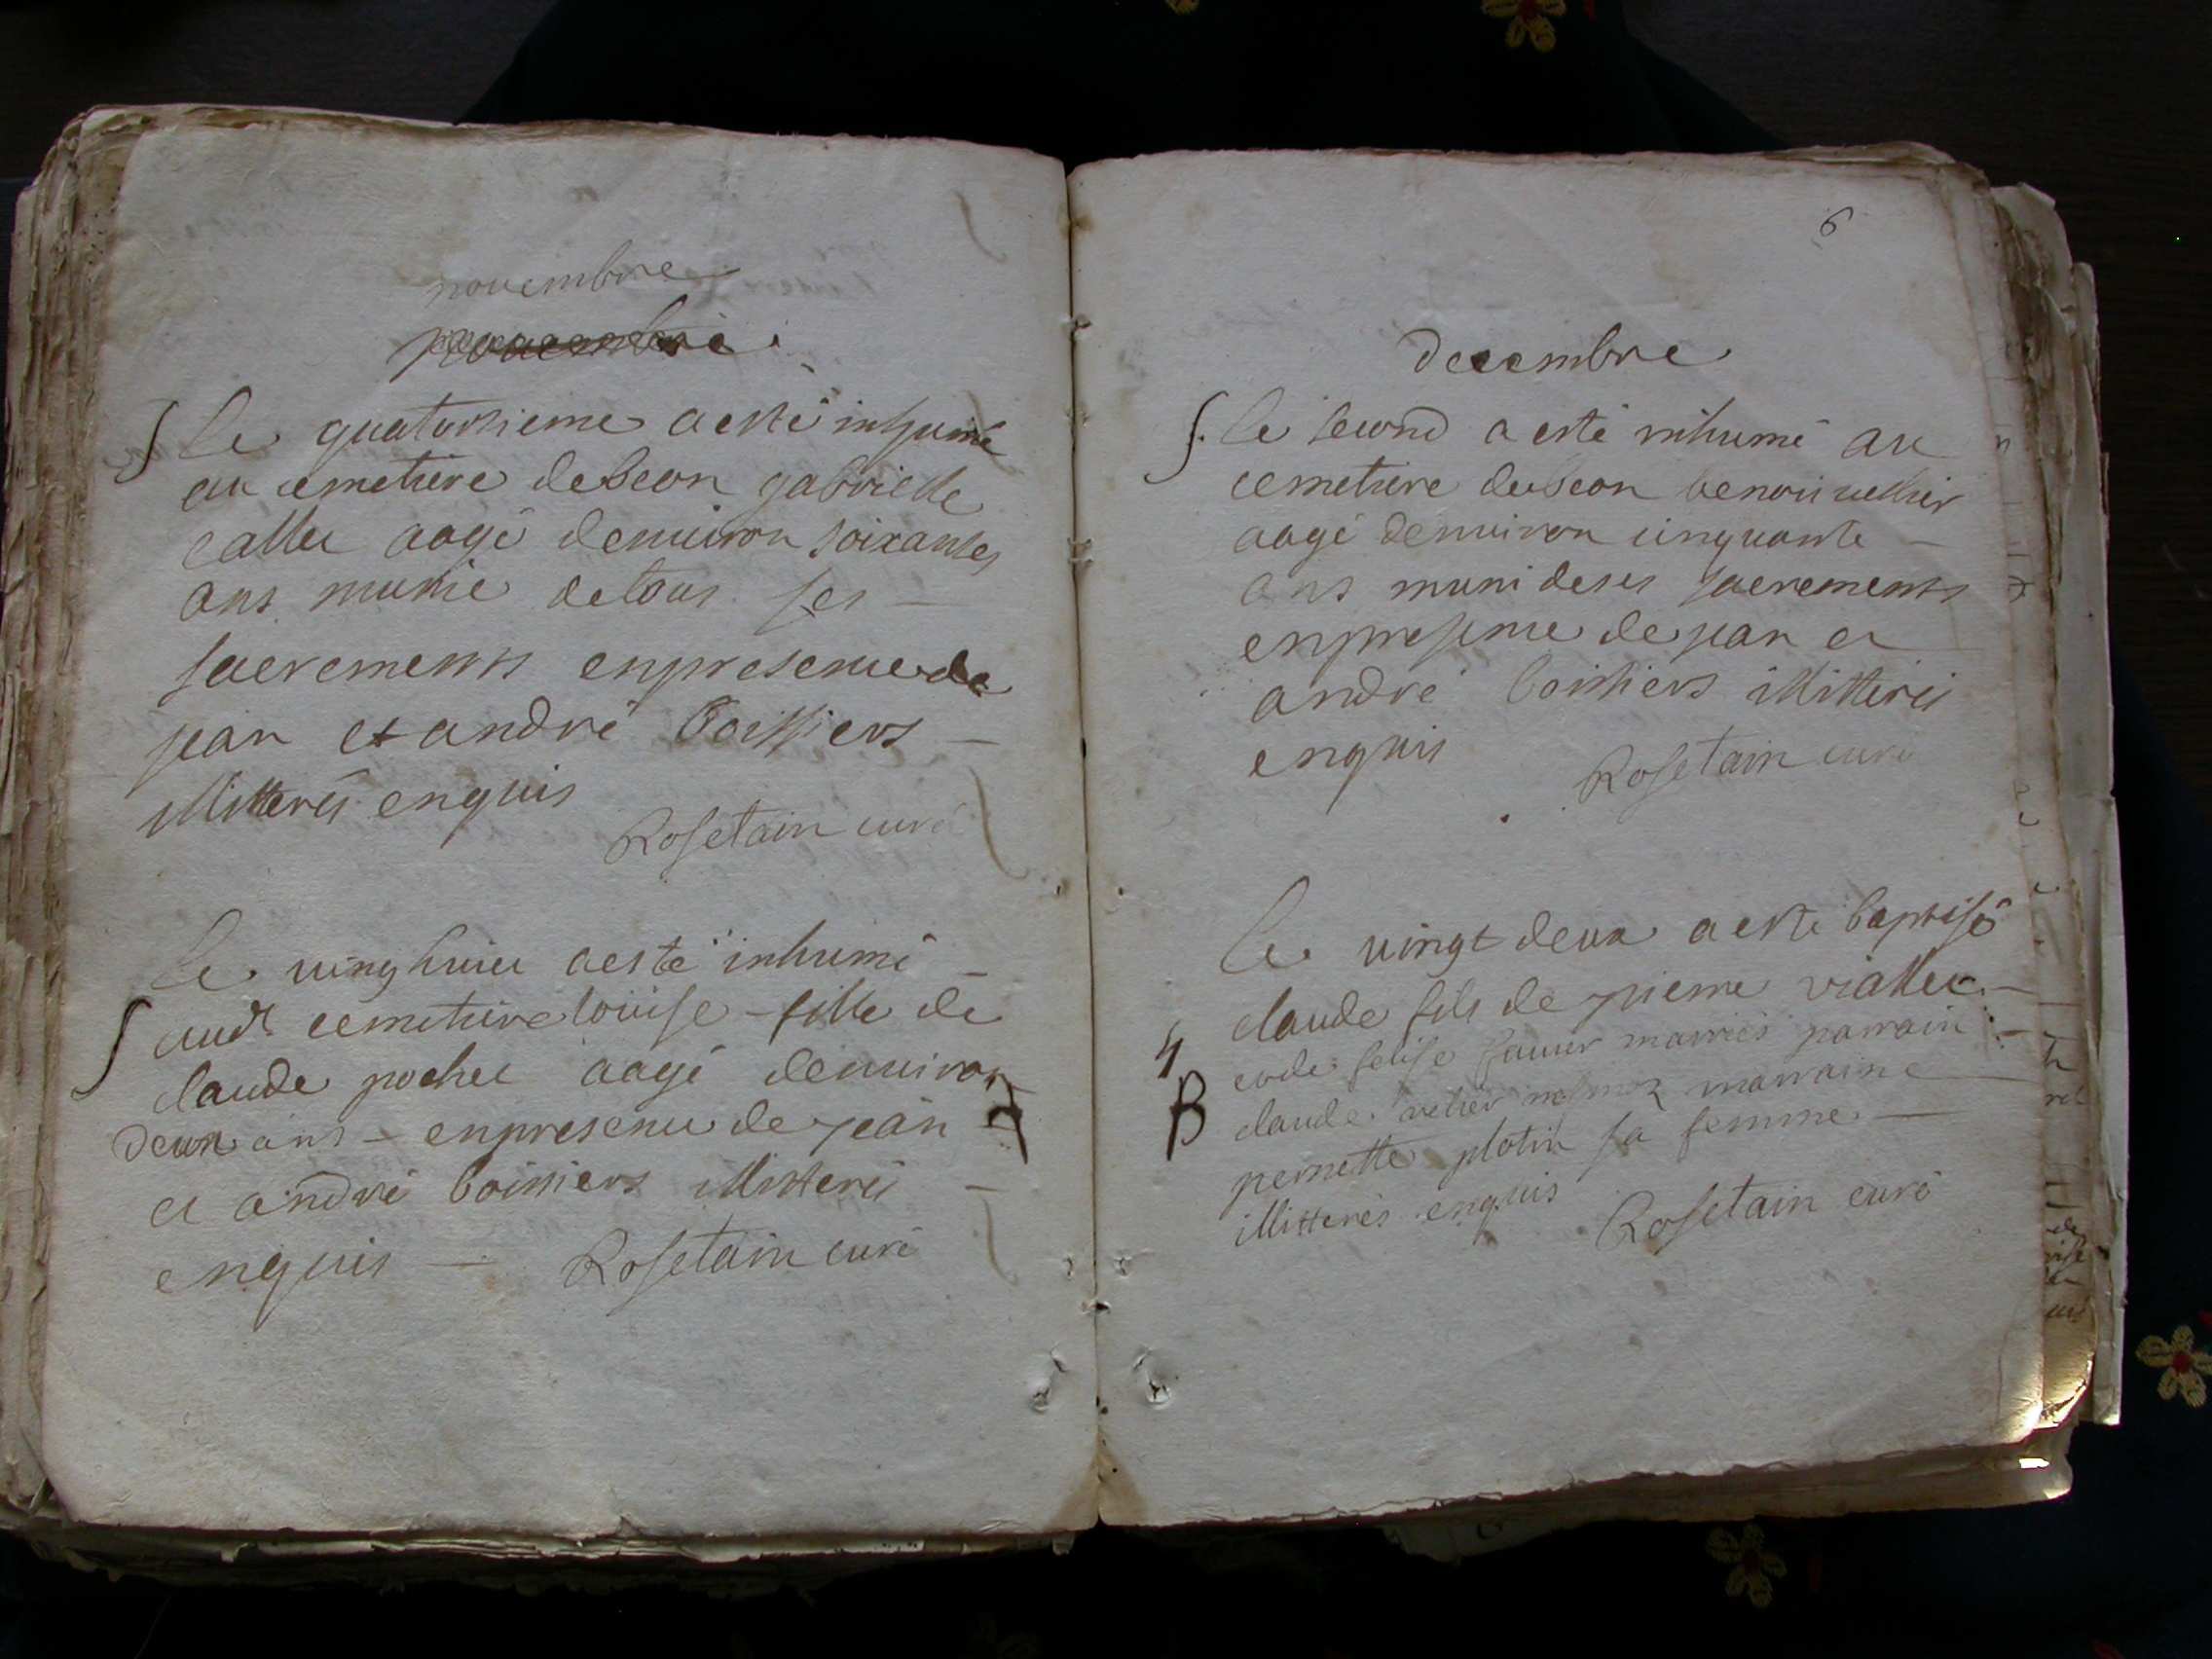 novembre
novembre
S le quatorsieme a esté inhumé
au cemetiere de Beon gabrielle
callet aagé denuiron soixantes
ans munie de tous ses
sacrements en presence de
jean et andré boissiers
illitterés enquis
Rosetain curé
le ving huict a esté inhumé
S audt cemetiere loüise fille de
claude pochet aagé denuiron
deux ans en presence de jean
et andré boissiers illitterés
enquis Rosetain curé
6
decembre
S. le second a esté inhumé au
cemetiere de Beon benoit
aagé denuiron cinquante
ans muni de ses sacrements
en presence de jean et
andré boissiers illitterés
enquis
Rosetain curé
le vingt deux a esté baptisé
claude fils de pierre viallet
4 et de felise mariés parrain
B claude marraine
pernette plotin sa femme
illitterés enquis
Rosetain curé